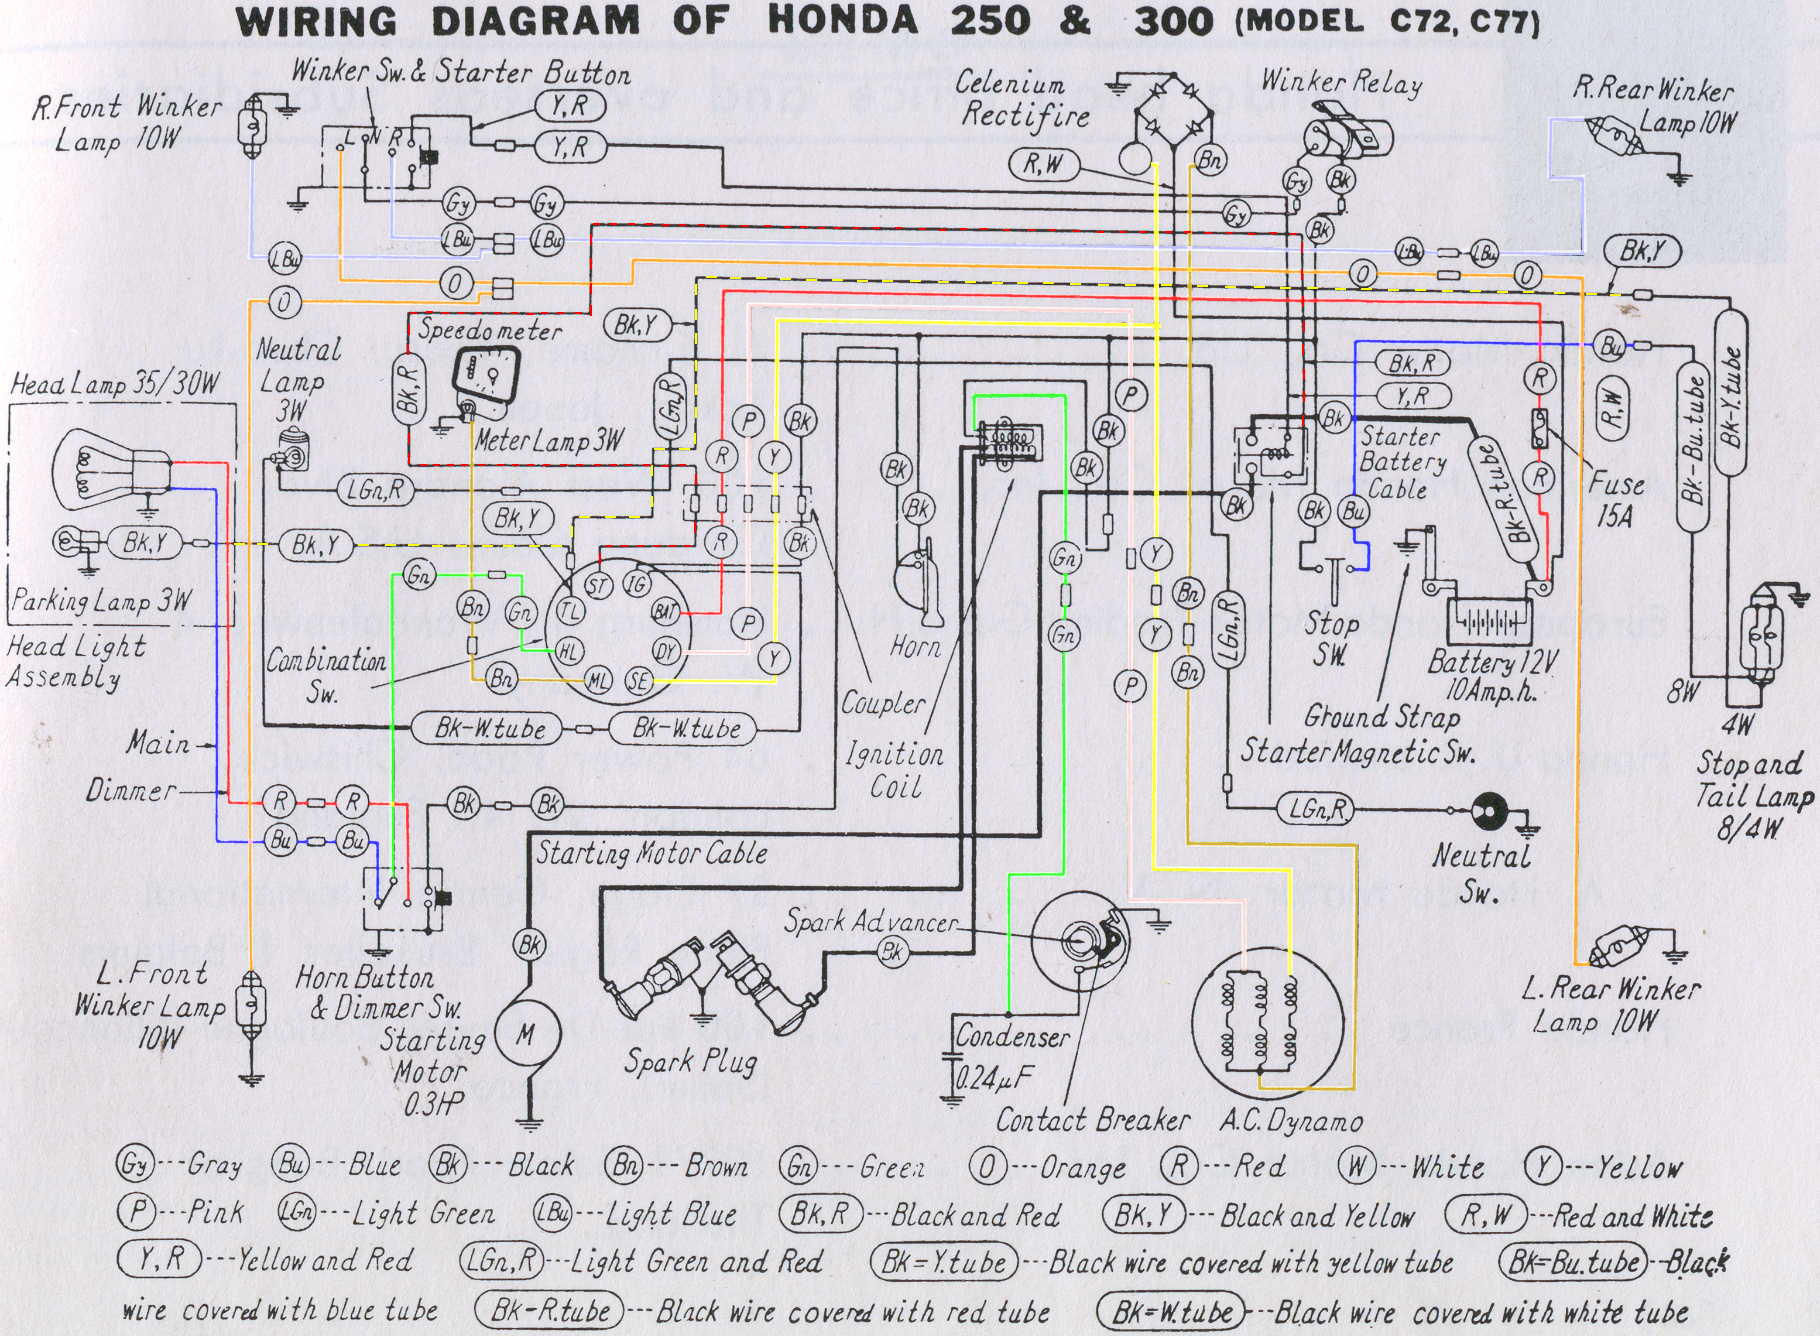 WIRING DIAGRAM OF HONDA 250 & 300 (MODEL C72, C77)
Winker Sw. & Starter Button
R.Front Winker
Lamp 10W
L N R
Y,R
Y,R
Celenium
Rectifire
R,W
Bn
Winker Relay
Gy
Bk
R.Rear Winker
Lamp 10W
Gy
Gy
Gy
Bk
LBu
LBu
LBu
LBu
LBu
Bk,Y
O
O
O
O
Speedometer
Bk,Y
Neutral
Lamp
3W
Bk,R
Meter Lamp 3W
LGn,R
P
R
Y
Bk
Head Lamp 35/30W
LGn,R
Bk,Y
Bk,Y
Bk,Y
Parking Lamp 3W
Head Light
Assembly
R
Bk
Gn
Gn
Bn
Bn
Combination
Sw.
TL
ST
IG
BAT
HL
DY
ML
SE
P
Y
Bk
Bk
Horn
Coupler
Ignition
Coil
Bk
Bk
P
P
Gn
Gn
Y
Y
Bn
Bn
LGn,R
Bk,R
Y,R
Bk
Starter
Battery
Cable
Bk
Bk
Bu
Bk-R.tube
R
R
Fuse
15A
Bu
R,W
Bk-Bu.tube
Bk-Y.tube
Stop
SW.
Battery 12V
10Amp.h.
Ground Strap
Starter Magnetic Sw.
8W
4W
Stop and
Tail Lamp
8/4W
Main
Dimmer
Bk-W.tube
Bk-W.tube
R
R
Bu
Bu
Bk
Bk
Starting Motor Cable
LGn,R
Neutral
Sw.
L.Front
Winker Lamp
10W
Horn Button
& Dimmer Sw.
Starting
Motor
0.3HP
Bk
M
Spark Plug
Spark Advancer
Bk
Condenser
0.24μF
Contact Breaker
A.C. Dynamo
L.Rear Winker
Lamp 10W
Gy---Gray Bu---Blue Bk---Black Bn---Brown Gn---Green O---Orange R---Red W---White Y---Yellow
P---Pink LGn---Light Green LBu---Light Blue Bk,R---Black and Red Bk,Y---Black and Yellow R,W---Red and White
Y,R---Yellow and Red LGn,R---Light Green and Red Bk=Y.tube---Black wire covered with yellow tube Bk=Bu.tube--Black
wire covered with blue tube Bk-R.tube---Black wire covered with red tube Bk=W.tube---Black wire covered with white tube